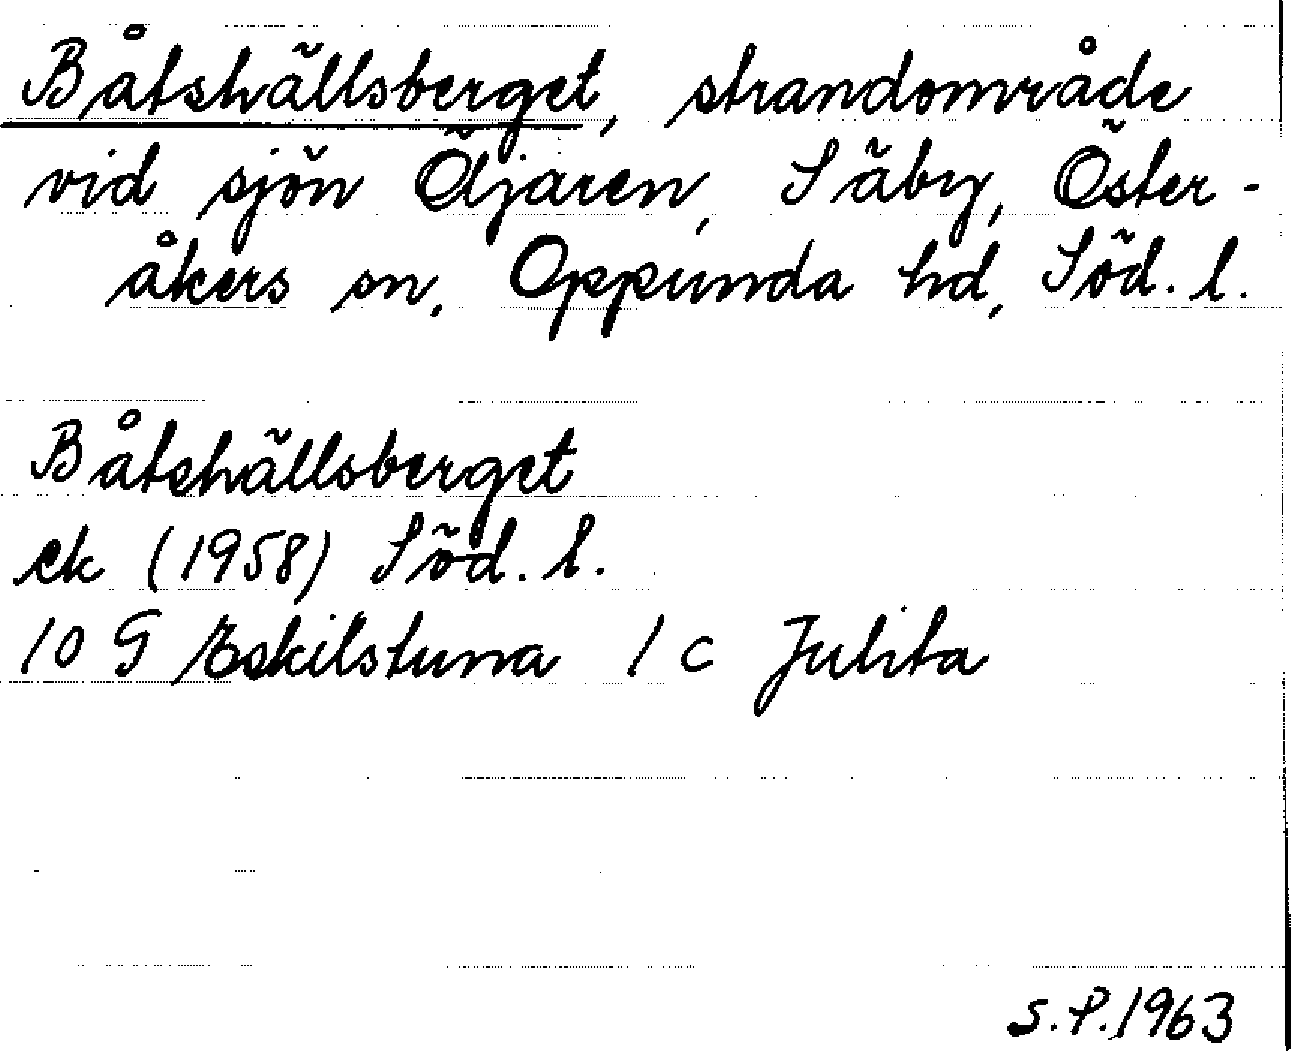 Båtshällsberget, strandområde
vid sjön Öljaren, Säby, Öster-
åkers sn, Oppunda hd, Söd. l.
Båtshällsberget
ek (1958) Söd. l.
10 G Eskilstuna 1 c Julita
S.P. 1963